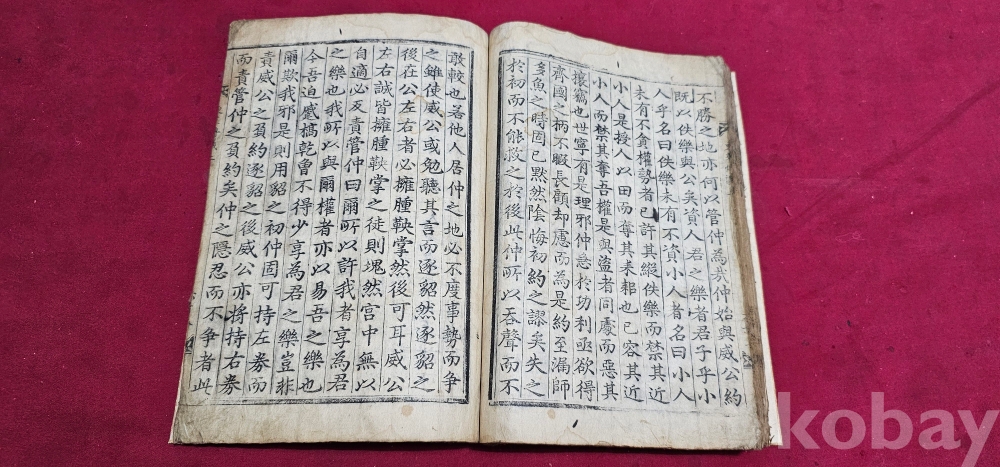 不勝之地亦何以管仲為哉仲始與威公約
既以佚樂與公矣資人君之樂者君子乎小
人乎名曰佚樂未有不資小人者名曰小人
未有不貪權勢者已許其縱佚樂而禁其近
小人是授人以田而奪其耒耜也已容其近
小人而禁其奪吾權是與盜者同處而惡其
攘竊也世寧有是理邪仲急於功利亟欲得
齊國之柄不暇長顧却慮而為是約至漏師
多魚之時固已黙然陰悔初約之謬矣失之
於初而不能救之於後此仲所以吞聲而不
敢較也若他人居仲之地必不度事勢而争
之雖使威公或勉聽其言而逐貂然逐貂之
後在公左右者必擁腫鞅掌然後可耳威公
左右誠皆擁腫鞅掌之徒則塊然宫中無以
自適必反責管仲曰爾所以許我者享為君
之樂也我所以與爾權者亦以易吾之樂也
今吾迫蹙槁乾曾不得少享為君之樂豈非
爾欺我邪是則用貂之初仲固可持左券而
責威公之負約逐貂之後威公亦將持右券
而責管仲之負約矣仲之隱忍而不争者此
kobay